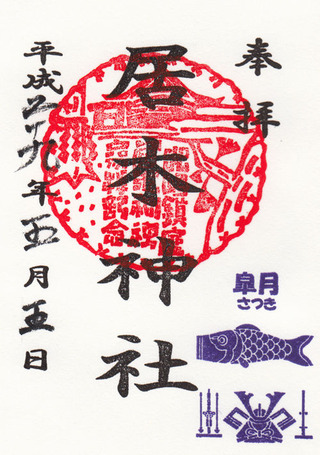 奉拝
居木神社
平成二十九年五月五日
皐月
さつき